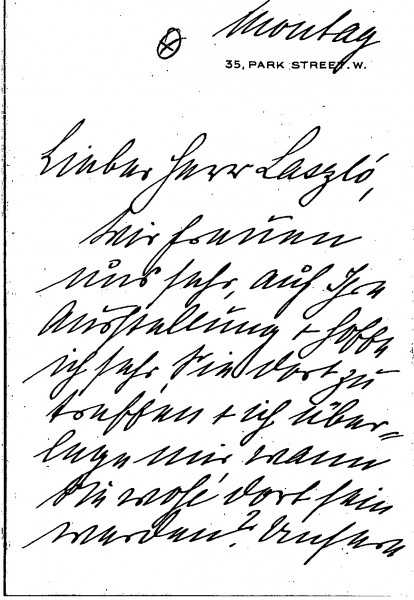 Montag
35, PARK STREET. W.
Lieber Herr László,
Wir freuen
uns sehr, auf Ihre
Ausstellung + hoffe
ich sehr, Sie dort zu
treffen + ich über=
lege mir, wann
Sie wohl dort sein
werden? Unsere